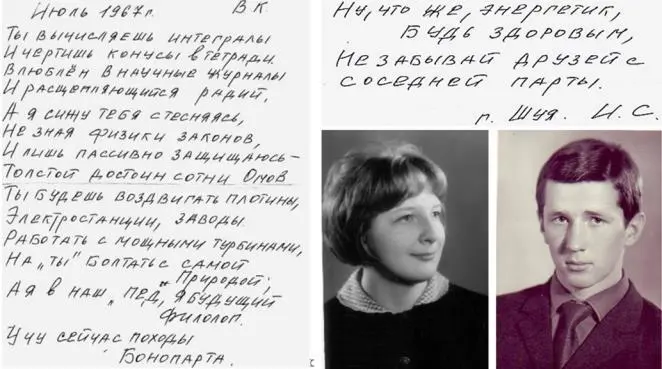 Июль 1967г.
В К.
Ты вычисляешь интегралы
И чертишь конусы в тетради.
Влюблён в научные журналы
И расщепляющийся радий.
А я сижу тебя стесняясь,
Не зная физики законов,
И лишь пассивно защищаюсь –
Толстой достоин сотни Омов
Ты будешь воздвигать плотины,
Электростанции, заводы.
Работать с мощными турбинами,
На „ты" болтать с самой
Природой;
А я в наш „пед", я будущий
филолог.
Учу сейчас походы
Бонопарта.
Ну, что же, энергетик,
Будь здоровым,
Не забывай друзей с
соседней парты.
г. Шуя. И.С.